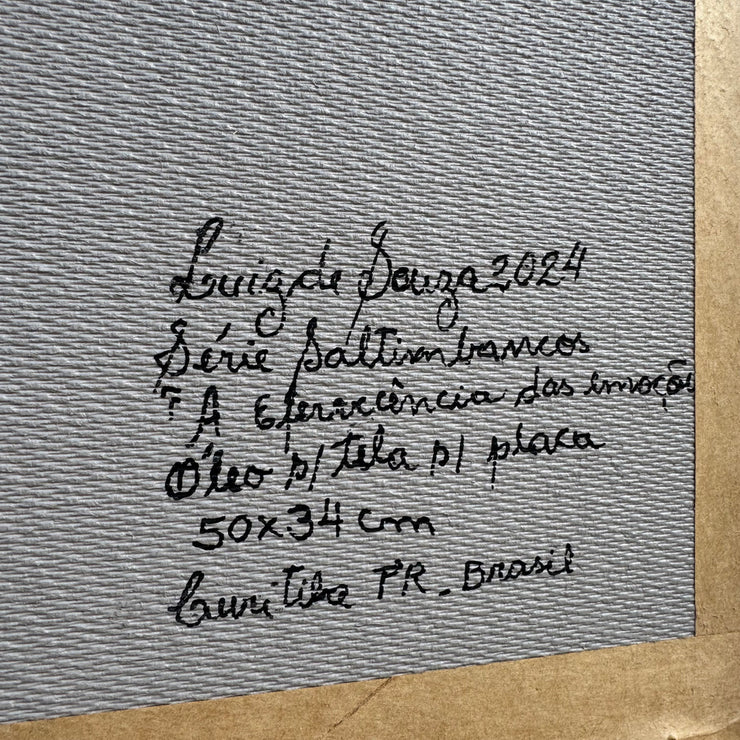 Luiz de Souza 2024
Série Saltimbancos
T A Efervecência das imoçõ
Óleo s/ tela s/ placa
50x34 cm
Curitiba PR - Brasil